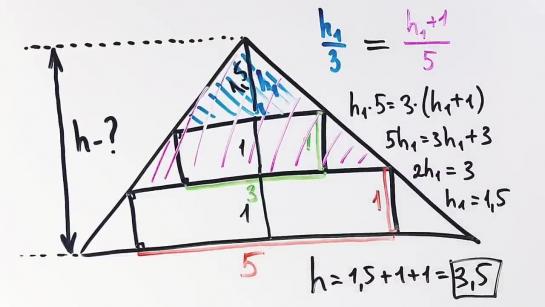 h₁/3 = (h₁+1)/5
h₁·5=3·(h₁+1)
5h₁=3h₁+3
2h₁=3
h₁=1,5
h-?
1,5
h₁
1
1
3
1
1
5
h=1,5+1+1=3,5